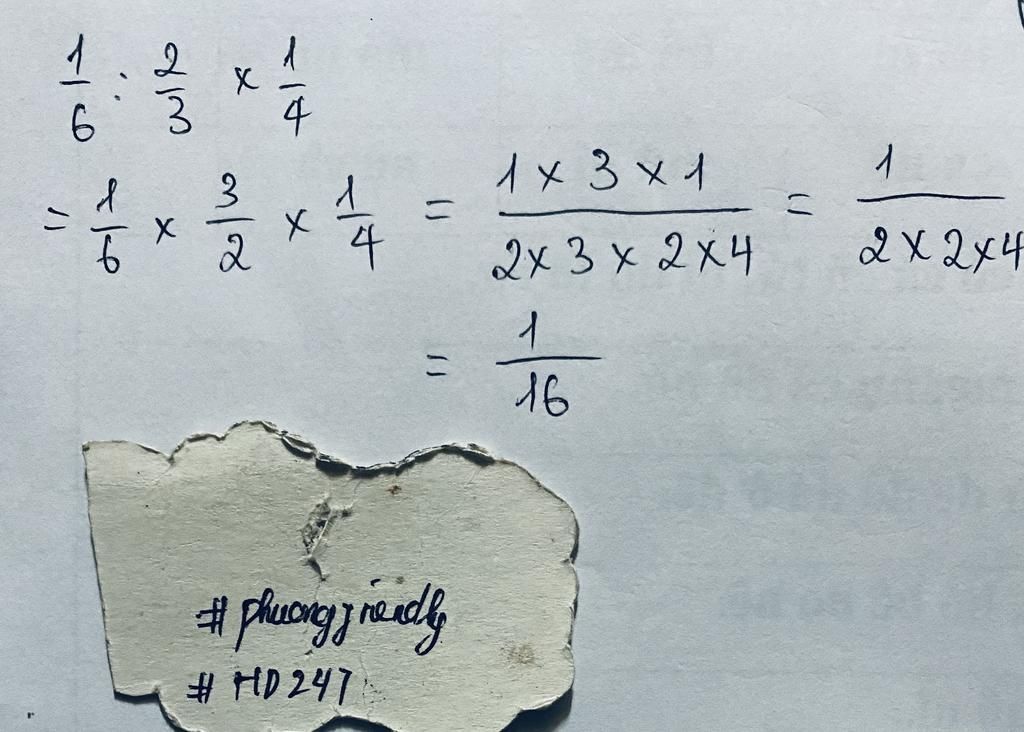 1/6 : 2/3 × 1/4
= 1/6 × 3/2 × 1/4 = (1 × 3 × 1)/(2 × 3 × 2 × 4) = 1/(2 × 2 × 4)
= 1/16
# phuongfriendly
# HD247